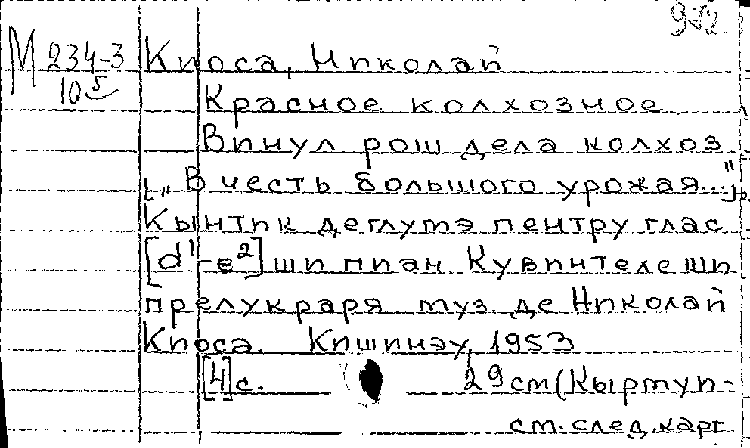 982
М 234-3 Киоса, Николай
10 5
Красное колхозное
Винул рош дела колхоз
[„В честь большого урожая..."]
Кынтик деглумэ пентру глас
[d¹-e²] ши пиан Кувинтеле ши
прелукраря муз де Николай
Киоса. Кишинэу, 1953
[4]с. 29 см (Кыртуп-
см. след. карт